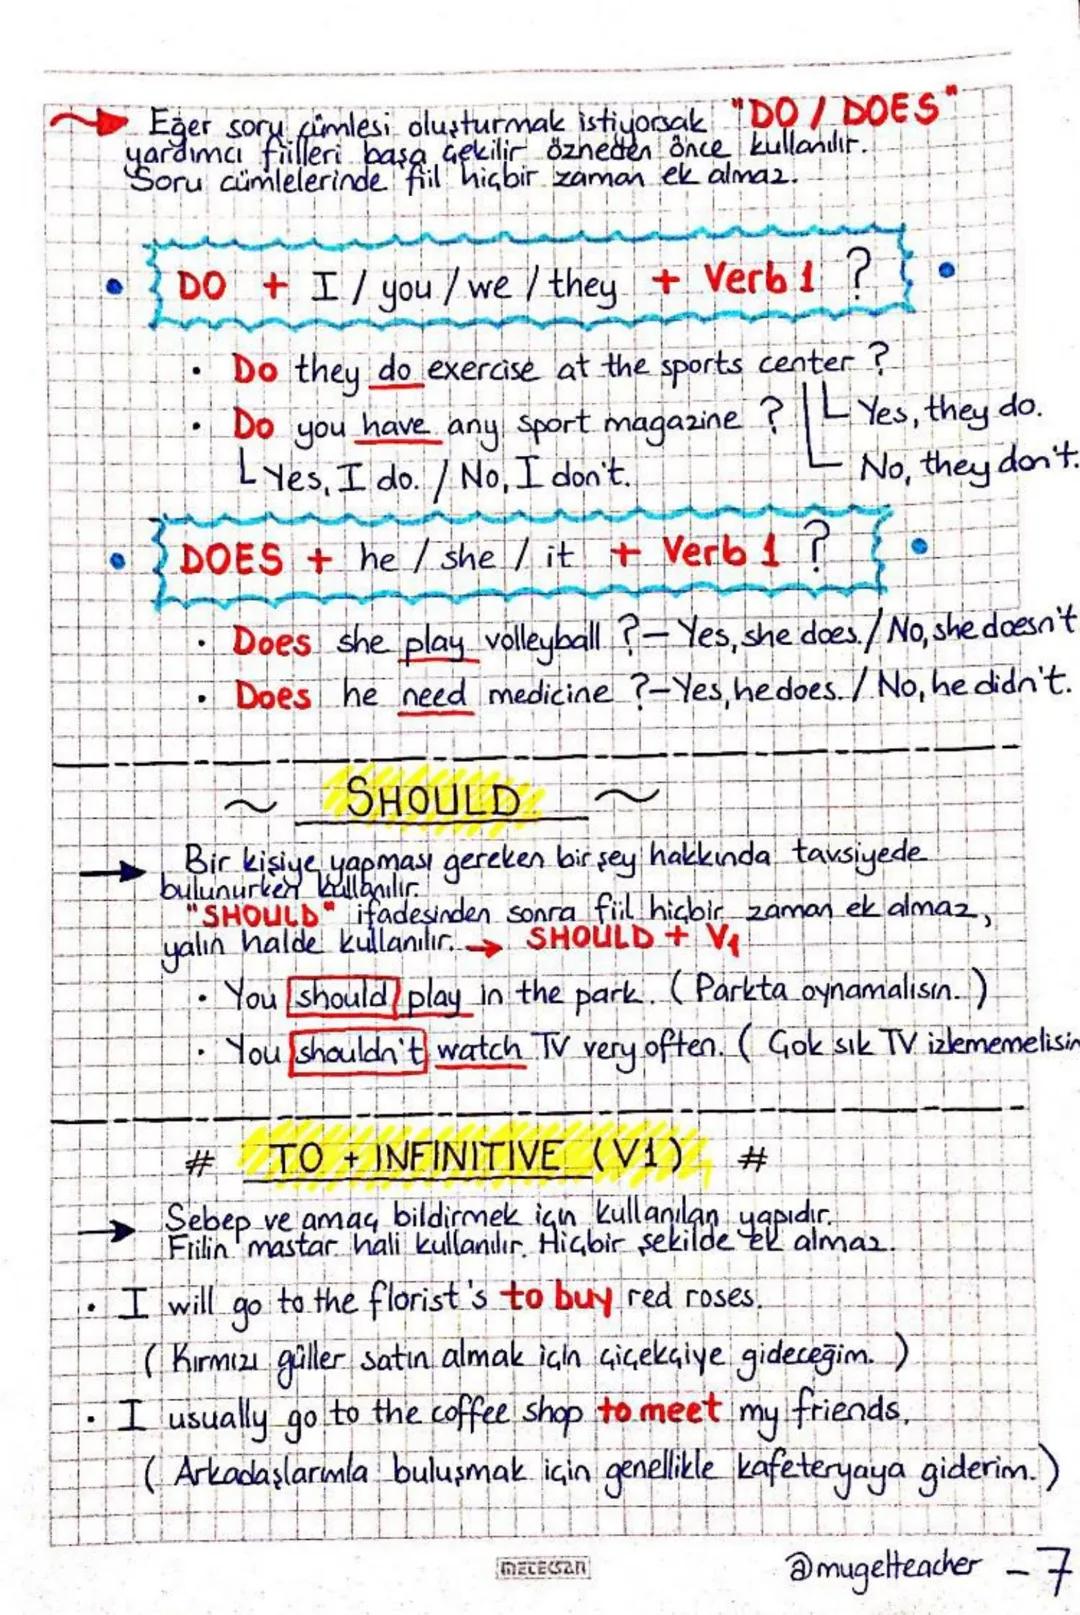 Eğer soru cümlesi oluşturmak istiyorsak "DO / DOES"
yardımcı fiilleri başa çekilir özneden önce kullanılır.
Soru cümlelerinde fiil hiçbir zaman ek almaz.
DO + I / you / we / they + Verb 1 ?
• Do they do exercise at the sports center ?
Yes, they do.
• Do you have any sport magazine ?
No, they don't.
Yes, I do. / No, I don't.
DOES + he / she / it + Verb 1 ?
• Does she play volleyball ? – Yes, she does. / No, she doesn't
• Does he need medicine ? – Yes, he does. / No, he didn't.
~ SHOULD ~
Bir kişiye yapması gereken bir şey hakkında tavsiyede
bulunurken kullanılır.
"SHOULD" ifadesinden sonra fiil hiçbir zaman ek almaz,
yalın halde kullanılır. → SHOULD + V1
• You should play in the park. ( Parkta oynamalısın. )
• You shouldn't watch TV very often. ( Çok sık TV izlememelisin
# TO + INFINITIVE (V1) #
Sebep ve amaç bildirmek için kullanılan yapıdır.
Fiilin mastar hali kullanılır. Hiçbir şekilde ek almaz.
• I will go to the florist's to buy red roses.
( Kırmızı güller satın almak için çiçekçiye gideceğim. )
• I usually go to the coffee shop to meet my friends.
( Arkadaşlarımla buluşmak için genellikle kafeteryaya giderim. )
METEKSAN
@mugelteacher – 7